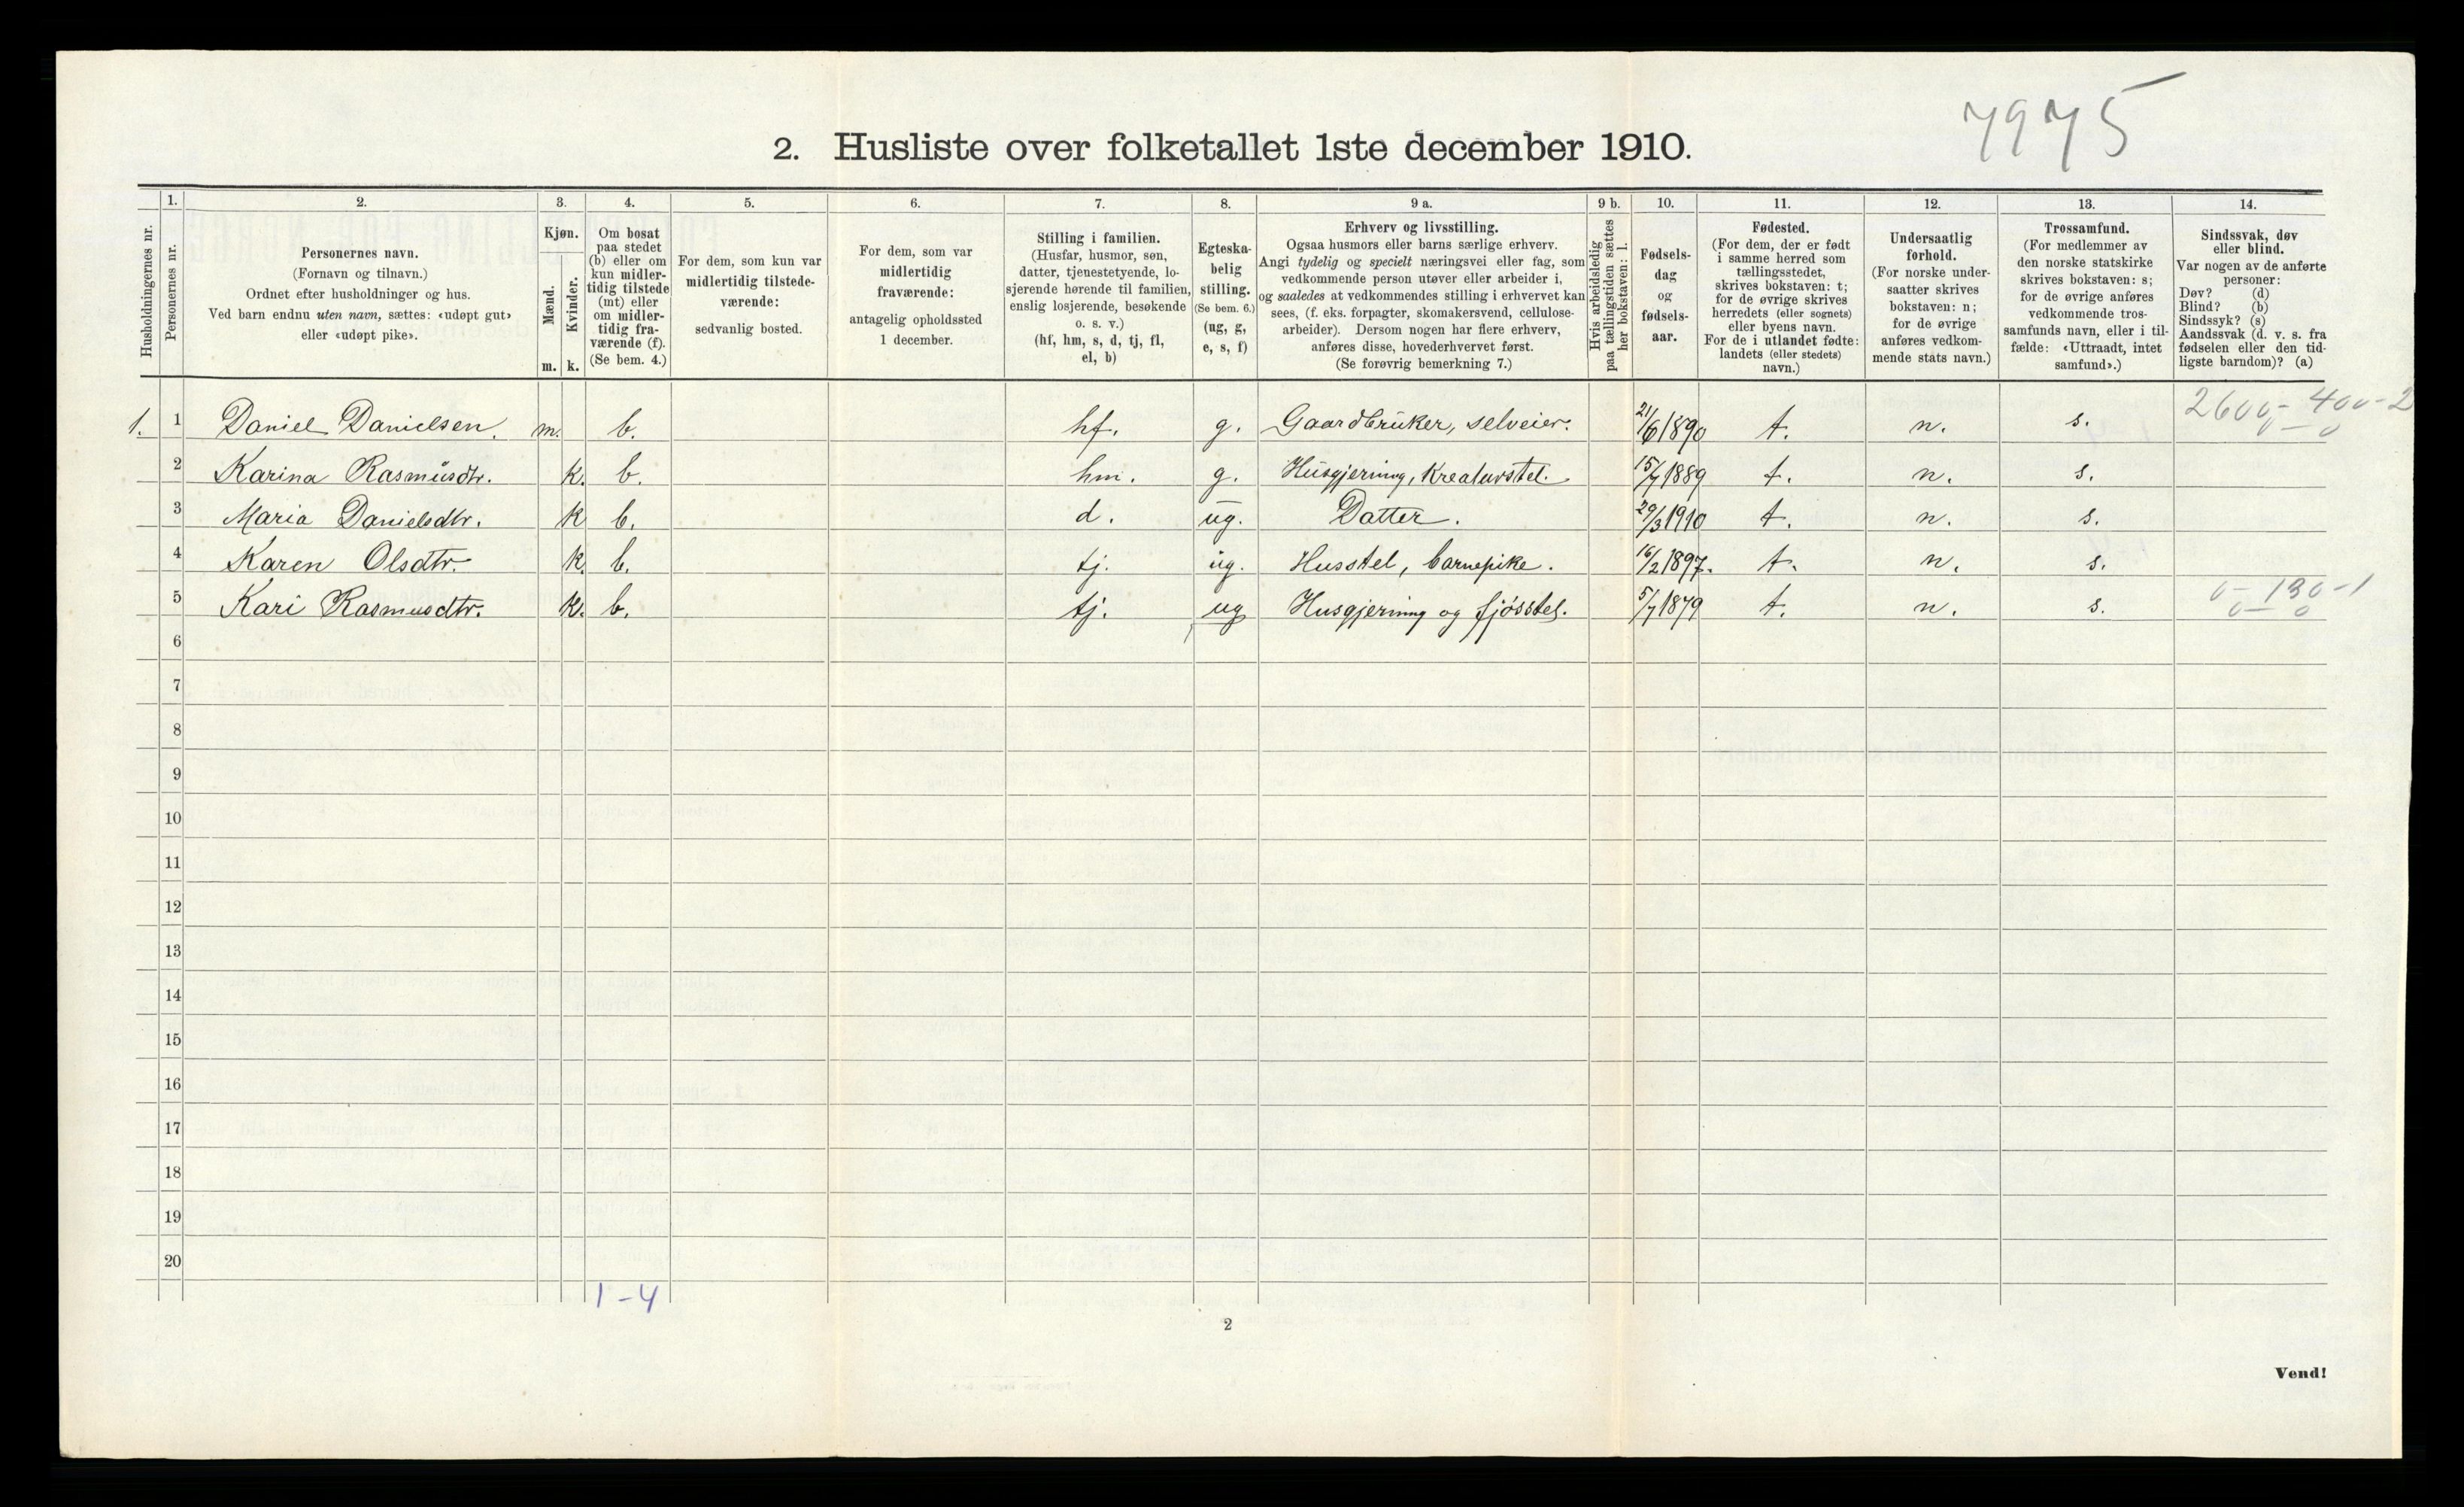 7975
2. Husliste over folketallet 1ste december 1910.
Husholdningernes nr.
1.
Personernes nr.
2.
Personernes navn.
(Fornavn og tilnavn.)
Ordnet efter husholdninger og hus.
Ved barn endnu uten navn, sættes: «udøpt gut»
eller «udøpt pike».
3.
Kjøn.
Mænd.
Kvinder.
m. k.
4.
Om bosat
paa stedet
(b) eller om
kun midler-
tidig tilstede
(mt) eller
om midler-
tidig fra-
værende (f).
(Se bem. 4.)
5.
For dem, som kun var
midlertidig tilstede-
værende:
sedvanlig bosted.
6.
For dem, som var
midlertidig
fraværende:
antagelig opholdssted
1 december.
7.
Stilling i familien.
(Husfar, husmor, søn,
datter, tjenestetyende, lo-
sjerende hørende til familien,
enslig losjerende, besøkende
o. s. v.)
(hf, hm, s, d, tj, fl,
el, b)
8.
Egteska-
belig
stilling.
(Se bem. 6.)
(ug, g,
e, s, f)
9 a.
Erhverv og livsstilling.
Ogsaa husmors eller barns særlige erhverv.
Angi tydelig og specielt næringsvei eller fag, som
vedkommende person utøver eller arbeider i,
og saaledes at vedkommendes stilling i erhvervet kan
sees, (f. eks. forpagter, skomakersvend, cellulose-
arbeider). Dersom nogen har flere erhverv,
anføres disse, hovederhvervet først.
(Se forøvrig bemerkning 7.)
9 b.
Hvis arbeidsledig
paa tællingstiden sættes
her bokstaven: l.
10.
Fødsels-
dag
og
fødsels-
aar.
11.
Fødested.
(For dem, der er født
i samme herred som
tællingsstedet,
skrives bokstaven: t;
for de øvrige skrives
herredets (eller sognets)
eller byens navn.
For de i utlandet fødte:
landets (eller stedets)
navn.)
12.
Undersaatlig
forhold.
(For norske under-
saatter skrives
bokstaven: n;
for de øvrige
anføres vedkom-
mende stats navn.)
13.
Trossamfund.
(For medlemmer av
den norske statskirke
skrives bokstaven: s;
for de øvrige anføres
vedkommende tros-
samfunds navn, eller i til-
fælde: «Uttraadt, intet
samfund».)
14.
Sindssvak, døv
eller blind.
Var nogen av de anførte
personer:
Døv? (d)
Blind? (b)
Sindssyk? (s)
Aandssvak (d. v. s. fra
fødselen eller den tid-
ligste barndom)? (a)
1. 1 Daniel Danielsen. m. b. hf. g. Gaardbruker, selveier. 21/6 1890 t. n. s. 2600 - 400 - 2
0 - 0
2 Karina Rasmusdtr. k. b. hm. g. Husgjerning, Kreaturstel. 15/7 1889 t. n. s.
3 Maria Danielsdtr. k b. d. ug. Datter. 29/3 1910 t. n. s.
4 Karen Olsdtr. k. b. tj. ug. Husstel, barnepike. 16/2 1897. t. n. s.
5 Kari Rasmusdtr. k. b. tj. ug Husgjerning og fjøsstel. 5/7 1879 t. n. s. 0 - 130 - 1
0 - 0
6
7
8
9
10
11
12
13
14
15
16
17
18
19
20
1 - 4
2
Vend!